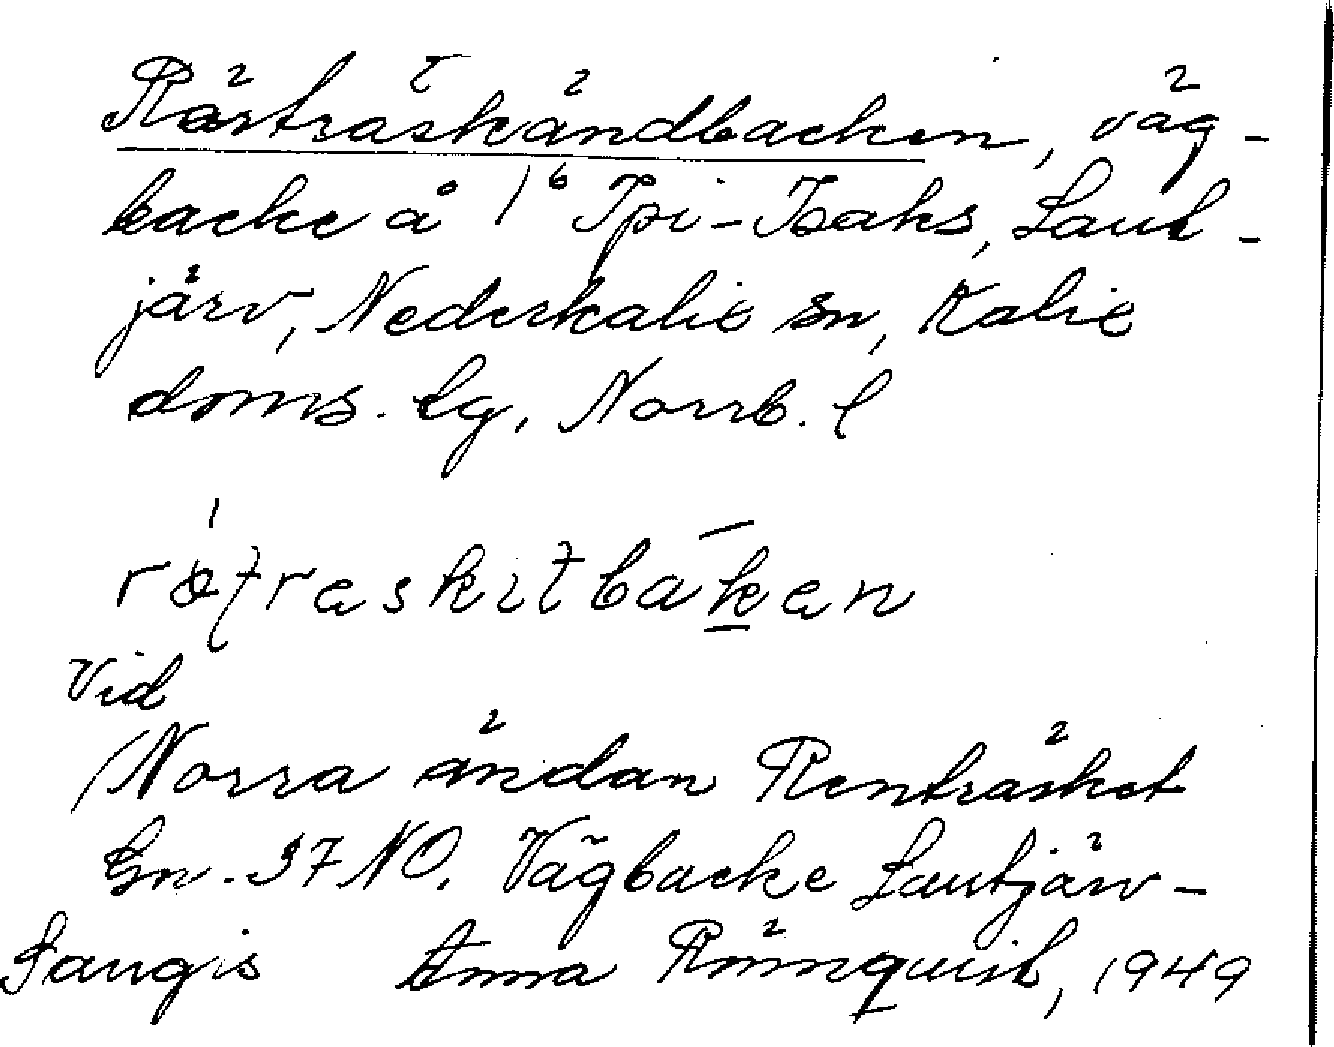 Rärträskändbacken, väg-
backe å 1⁶ Ipi-Isaks, Laut-
järv, Nederkalix sn, Kalix
doms. lg, Norrb. l
Vid
Norra ändan Renträsket
Gn. 37 NO. Vägbacke Lautjärv-
Sangis Anna Rönnquist, 1949